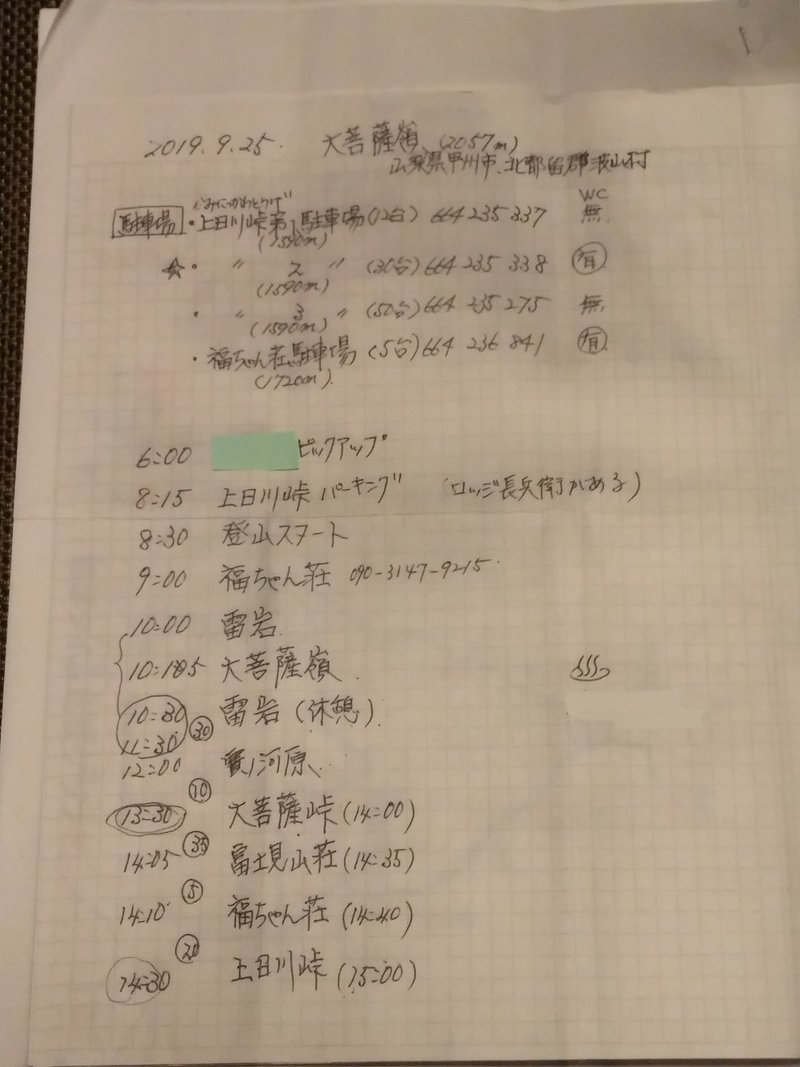 2019.9.25. 大菩薩嶺 (2057m)
山梨県甲州市、北都留郡波山村
WC
かみにっかわとうげ
駐車場 ・上日川峠第1駐車場(12台) 664 235 337 無
(1580m)
☆・ 〃 2 〃 (30台) 664 235 338 有
(1590m)
・ 〃 3 〃 (50台) 664 235 275 無
(1590m)
・福ちゃん荘駐車場 (5台) 664 236 841 有
(1720m)
6:00 ピックアップ
8:15 上日川峠パーキング (ロッジ長兵衛がある)
8:30 登山スタート
9:00 福ちゃん荘 090-3147-9215
10:00 雷岩
10:05 大菩薩嶺
10:30 雷岩(休憩)
11:30 30
12:00 賽ノ河原
10
13:30 大菩薩峠(14:00)
35
14:05 富士見山荘(14:35)
5
14:10 福ちゃん荘(14:40)
20
14:30 上日川峠(15:00)